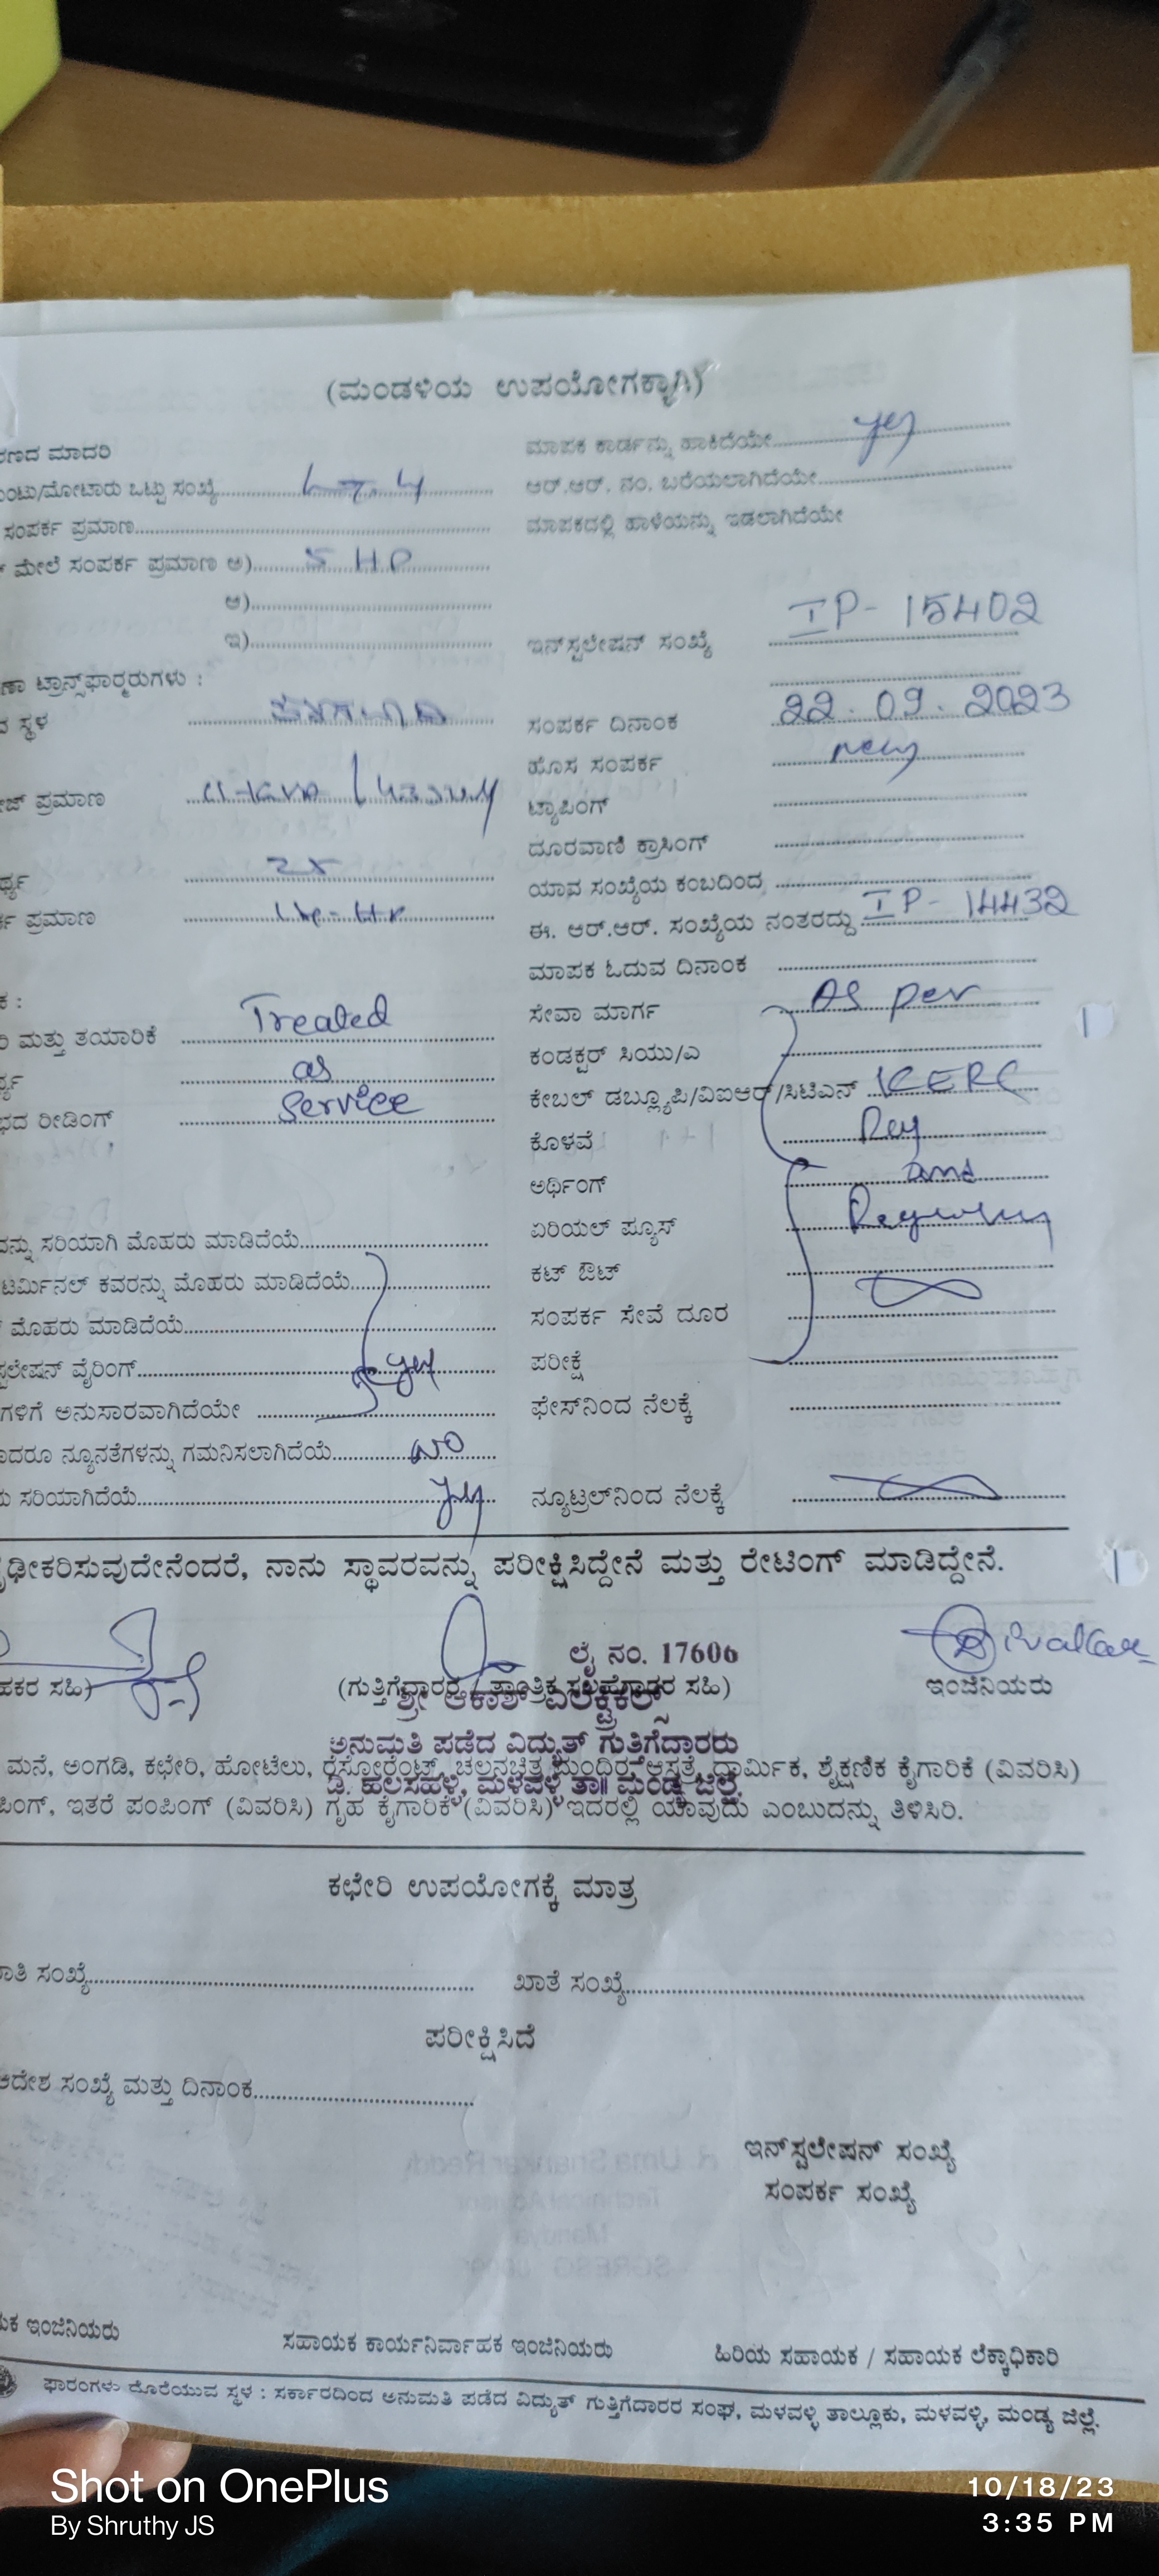 (ಮಂಡಳಿಯ ಉಪಯೋಗಕ್ಕಾಗಿ)
ರಣದ ಮಾದರಿ
ಂಟು/ಮೋಟಾರು ಒಟ್ಟು ಸಂಖ್ಯೆ LT-4
ಸಂಪರ್ಕ ಪ್ರಮಾಣ
ಮೇಲೆ ಸಂಪರ್ಕ ಪ್ರಮಾಣ ಅ) 5 HP
ಆ)
ಇ)
ಣಾ ಟ್ರಾನ್ಸ್‌ಫಾರ್ಮರುಗಳು :
ಸ್ಥಳ
ೇಜ್ ಪ್ರಮಾಣ
ರ್ಥ್ಯ 25
ಪ್ರಮಾಣ
ಕ :
ರಿ ಮತ್ತು ತಯಾರಿಕೆ Treated
as
ಭದ ರೀಡಿಂಗ್ Service
ವನ್ನು ಸರಿಯಾಗಿ ಮೊಹರು ಮಾಡಿದೆಯೆ
ಟರ್ಮಿನಲ್ ಕವರನ್ನು ಮೊಹರು ಮಾಡಿದೆಯೆ
ಮೊಹರು ಮಾಡಿದೆಯೆ
ಸ್ಟಲೇಷನ್ ವೈರಿಂಗ್ yes
ಗಳಿಗೆ ಅನುಸಾರವಾಗಿದೆಯೇ
ಾದರೂ ನ್ಯೂನತೆಗಳನ್ನು ಗಮನಿಸಲಾಗಿದೆಯೆ NO
ು ಸರಿಯಾಗಿದೆಯೆ yes
ಮಾಪಕ ಕಾರ್ಡನ್ನು ಹಾಕಿದೆಯೇ yes
ಆರ್.ಆರ್. ನಂ. ಬರೆಯಲಾಗಿದೆಯೇ
ಮಾಪಕದಲ್ಲಿ ಹಾಳೆಯನ್ನು ಇಡಲಾಗಿದೆಯೇ
ಇನ್‌ಸ್ಟಲೇಷನ್ ಸಂಖ್ಯೆ IP- 15402
ಸಂಪರ್ಕ ದಿನಾಂಕ 22.09.2023
ಹೊಸ ಸಂಪರ್ಕ new
ಟ್ಯಾಪಿಂಗ್
ದೂರವಾಣಿ ಕ್ರಾಸಿಂಗ್
ಯಾವ ಸಂಖ್ಯೆಯ ಕಂಬದಿಂದ
ಈ. ಆರ್.ಆರ್. ಸಂಖ್ಯೆಯ ನಂತರದ್ದು IP- 14432
ಮಾಪಕ ಓದುವ ದಿನಾಂಕ
ಸೇವಾ ಮಾರ್ಗ As per
ಕಂಡಕ್ಟರ್ ಸಿಯು/ಎ
ಕೇಬಲ್ ಡಬ್ಲ್ಯೂಪಿ/ವಿಐಆರ್/ಸಿಟಿಎನ್ KERC
ಕೊಳವೆ
ಅರ್ಥಿಂಗ್ and
ಏರಿಯಲ್ ಫ್ಯೂಸ್
ಕಟ್ ಔಟ್
ಸಂಪರ್ಕ ಸೇವೆ ದೂರ
ಪರೀಕ್ಷೆ
ಫೇಸ್‌ನಿಂದ ನೆಲಕ್ಕೆ
ನ್ಯೂಟ್ರಲ್‌ನಿಂದ ನೆಲಕ್ಕೆ
ಢೀಕರಿಸುವುದೇನೆಂದರೆ, ನಾನು ಸ್ಥಾವರವನ್ನು ಪರೀಕ್ಷಿಸಿದ್ದೇನೆ ಮತ್ತು ರೇಟಿಂಗ್ ಮಾಡಿದ್ದೇನೆ.
ಲೈ ನಂ. 17606
ಹಕರ ಸಹಿ) (ಗುತ್ತಿಗೆದಾರರ / ತಾಂತ್ರಿಕ ಸಲಹೆಗಾರರ ಸಹಿ) ಇಂಜಿನಿಯರು
ಶ್ರೀ ಆಕಾಶ್ ಎಲೆಕ್ಟ್ರಿಕಲ್ಸ್
ಅನುಮತಿ ಪಡೆದ ವಿದ್ಯುತ್ ಗುತ್ತಿಗೆದಾರರು
ಮನೆ, ಅಂಗಡಿ, ಕಛೇರಿ, ಹೋಟೆಲು, ರೆಸ್ಟೋರೆಂಟ್, ಚಲನಚಿತ್ರ ಮಂದಿರ, ಆಸ್ಪತ್ರೆ, ಧಾರ್ಮಿಕ, ಶೈಕ್ಷಣಿಕ ಕೈಗಾರಿಕೆ (ವಿವರಿಸಿ)
ಡಿ. ಹಲಸಹಳ್ಳಿ, ಮಳವಳ್ಳಿ ತಾ|| ಮಂಡ್ಯ ಜಿಲ್ಲೆ.
ಪಿಂಗ್, ಇತರೆ ಪಂಪಿಂಗ್ (ವಿವರಿಸಿ) ಗೃಹ ಕೈಗಾರಿಕೆ (ವಿವರಿಸಿ) ಇದರಲ್ಲಿ ಯಾವುದು ಎಂಬುದನ್ನು ತಿಳಿಸಿರಿ.
ಕಛೇರಿ ಉಪಯೋಗಕ್ಕೆ ಮಾತ್ರ
ಾತಿ ಸಂಖ್ಯೆ ಖಾತೆ ಸಂಖ್ಯೆ
ಪರೀಕ್ಷಿಸಿದೆ
ಆದೇಶ ಸಂಖ್ಯೆ ಮತ್ತು ದಿನಾಂಕ
ಇನ್‌ಸ್ಟಲೇಷನ್ ಸಂಖ್ಯೆ
ಸಂಪರ್ಕ ಸಂಖ್ಯೆ
ಯಕ ಇಂಜಿನಿಯರು ಸಹಾಯಕ ಕಾರ್ಯನಿರ್ವಾಹಕ ಇಂಜಿನಿಯರು ಹಿರಿಯ ಸಹಾಯಕ / ಸಹಾಯಕ ಲೆಕ್ಕಾಧಿಕಾರಿ
ಫಾರಂಗಳು ದೊರೆಯುವ ಸ್ಥಳ : ಸರ್ಕಾರದಿಂದ ಅನುಮತಿ ಪಡೆದ ವಿದ್ಯುತ್ ಗುತ್ತಿಗೆದಾರರ ಸಂಘ, ಮಳವಳ್ಳಿ ತಾಲ್ಲೂಕು, ಮಳವಳ್ಳಿ, ಮಂಡ್ಯ ಜಿಲ್ಲೆ.
Shot on OnePlus
By Shruthy JS
10/18/23
3:35 PM